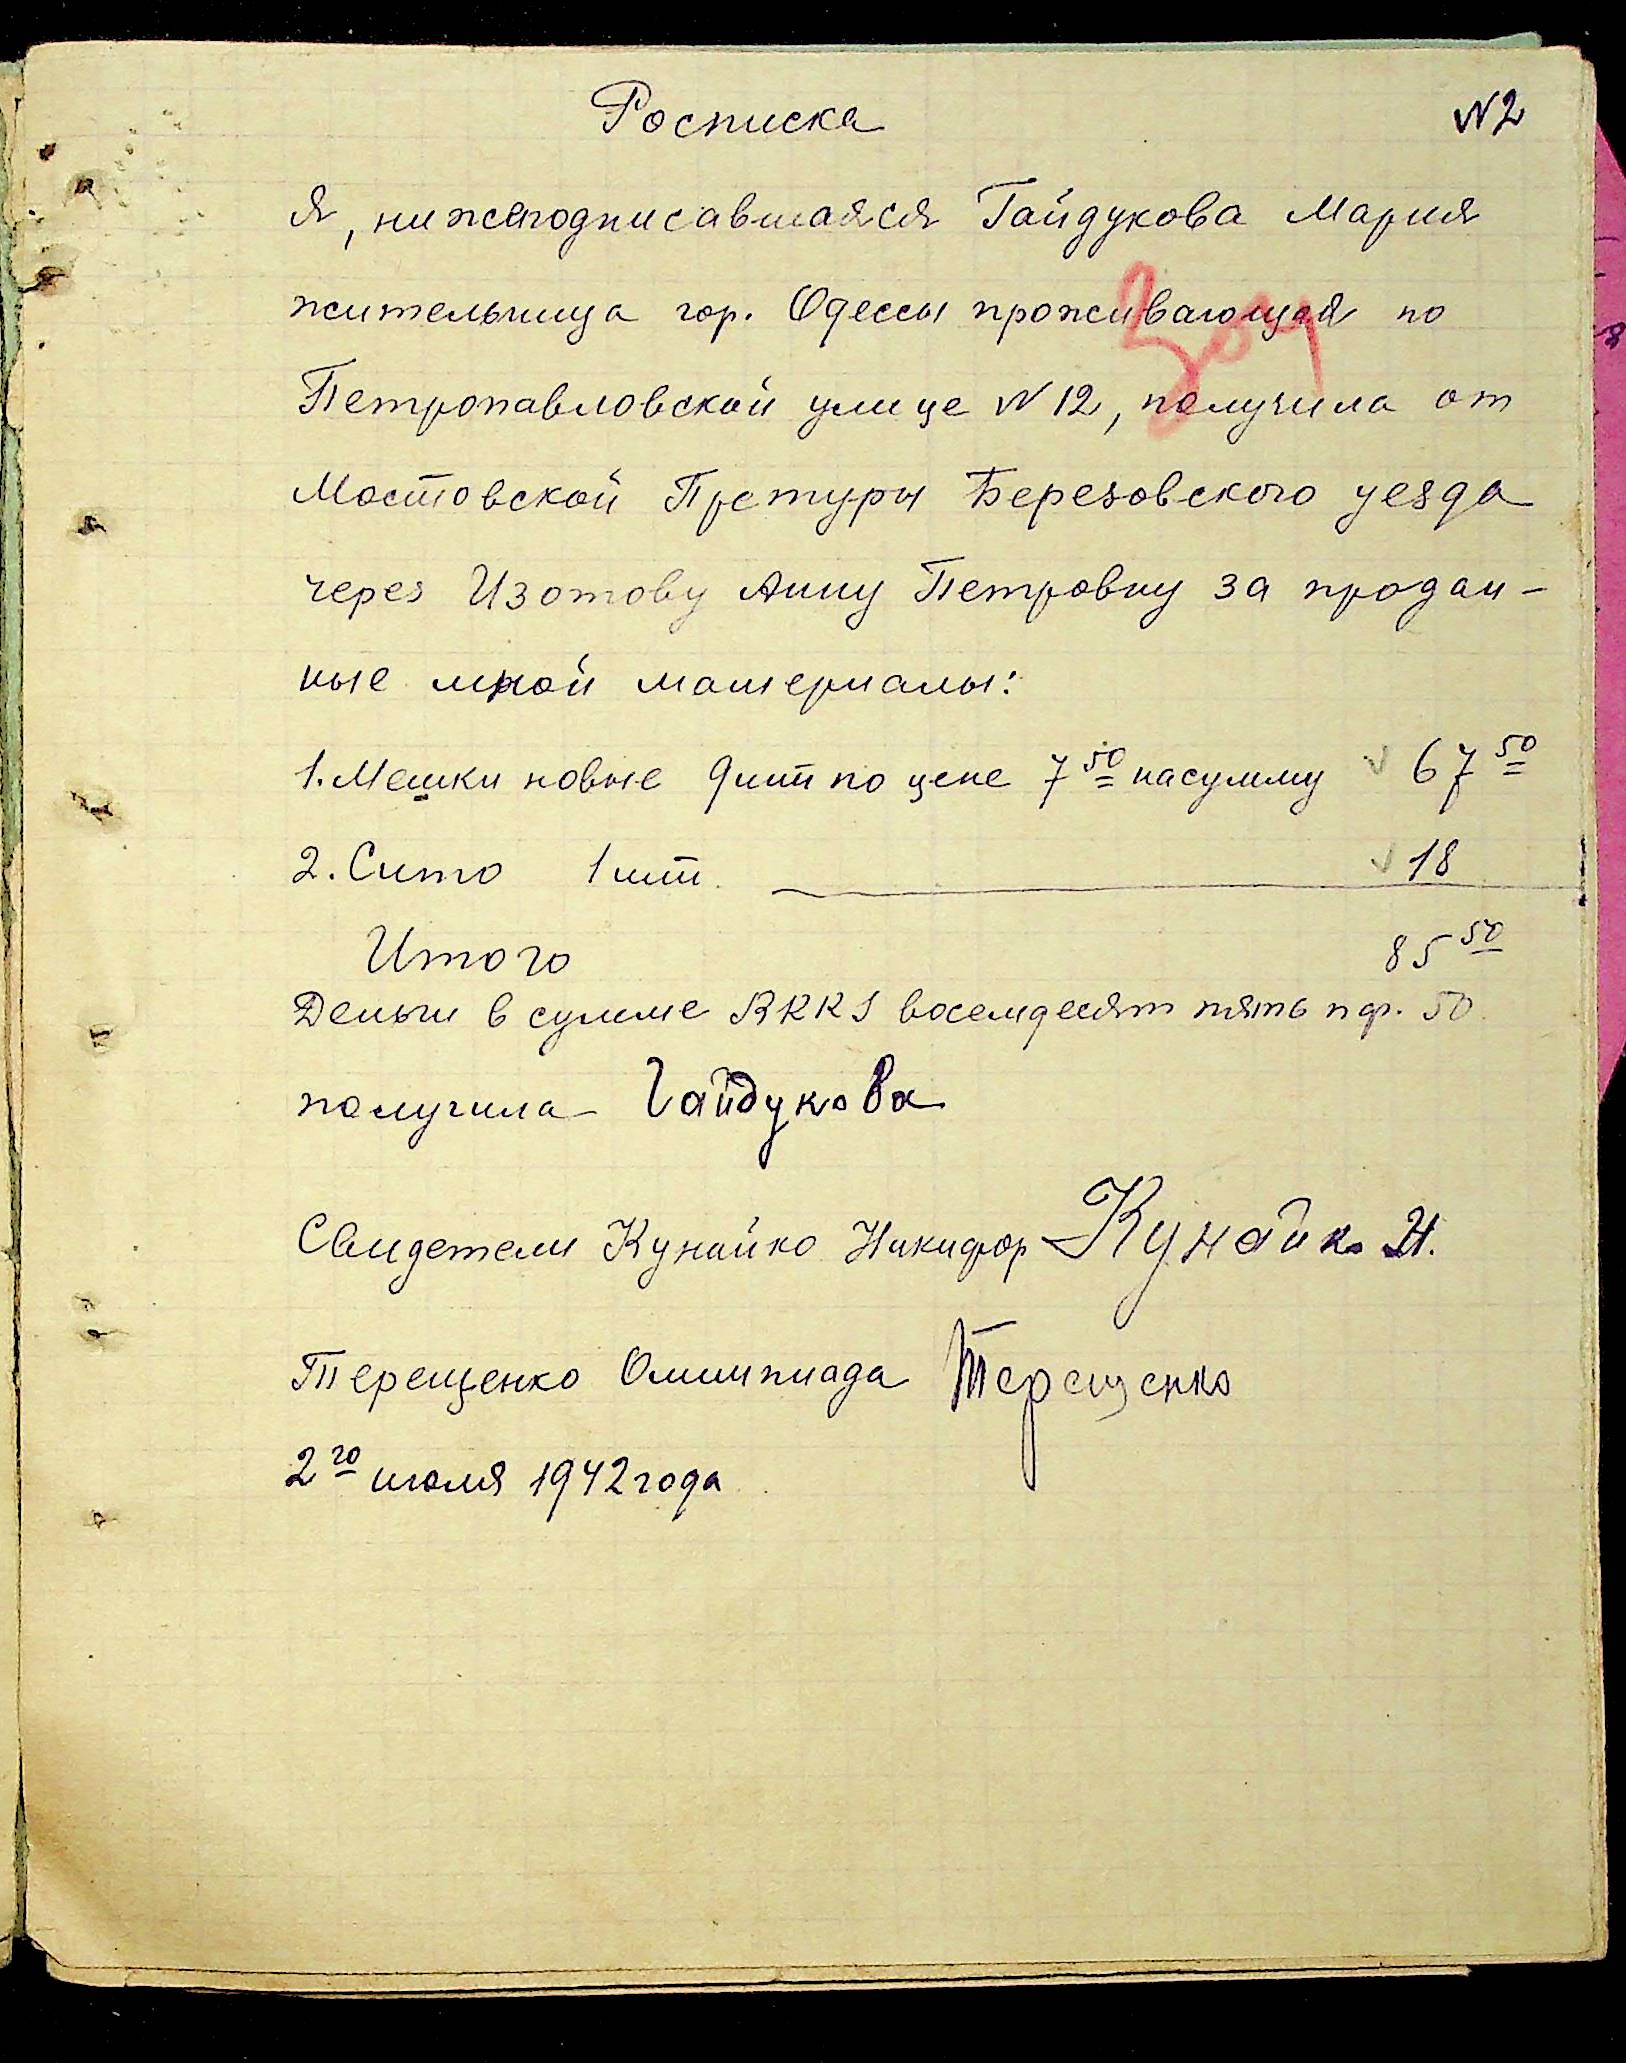 Росписка
N2
Я, нижеподписавшаяся Гайдукова Мария
жительница гор. Одессы проживающая по
Петропавловской улице N 12, получила от
Мостовской Претуры Березовского уезда
через Изотову Анну Петровну за продан-
ные мной материалы:
1. Мешки новые 9 шт по цене 7 50 на сумму 67 50
2. Сито 1 шт. 18
Итого 85 50
Деньги в сумме RKKS восемдесят пять пф. 50
получила Гайдукова
Свидетели Кунайко Никифор Кунайко Н.
Терещенко Олимпиада Терещенко
2го июля 1942 года